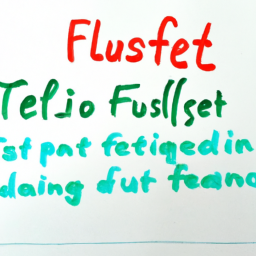 Flusfet
Telio Fuslſset
ist pat fetiged in
daing dut feano